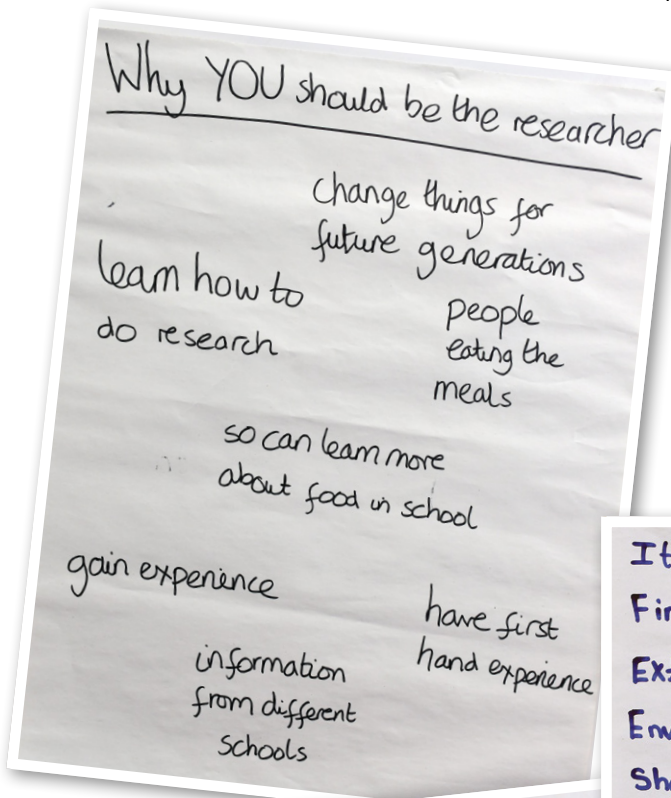 Why YOU should be the researcher
change things for
future generations
learn how to
do research
people
eating the
meals
so can learn more
about food in school
gain experience
have first
hand experience
information
from different
schools
It